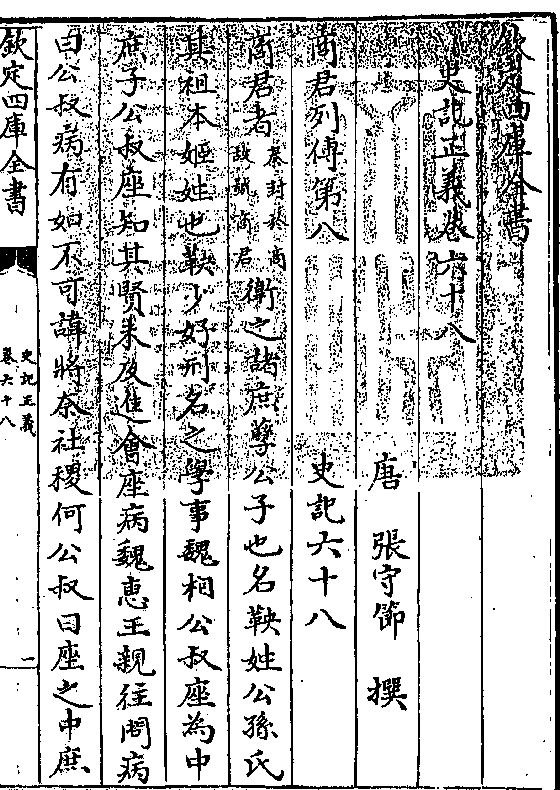 欽定四庫全書
史記正義卷六十八
唐 張守節 撰
商君列傳第八 史記六十八
商君者秦封於商故號商君衛之諸庶孽公子也名鞅姓公孫氏
其祖本姬姓也鞅少好刑名之學事魏相公叔座為中
庶子公叔座知其賢未及進會座病魏惠王親往問病
曰公叔病有如不可諱將奈社稷何公叔曰座之中庶
欽定四庫全書
史記正義
卷六十八
一